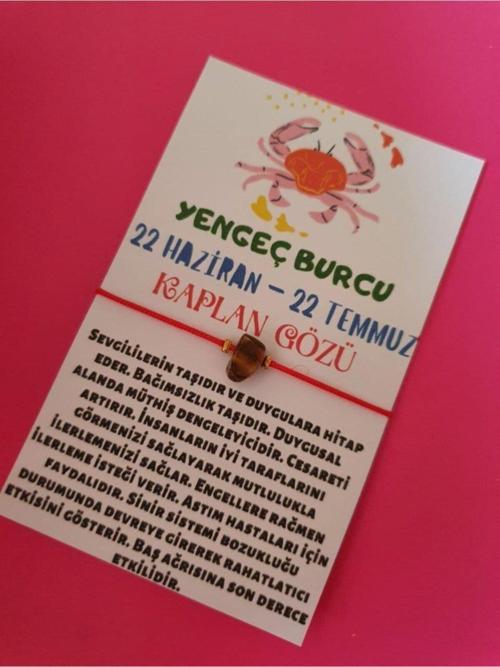 YENGEÇ BURCU
22 HAZİRAN – 22 TEMMUZ
KAPLAN GÖZÜ
SEVGİLİLERİN TAŞIDIR VE DUYGULARA HİTAP
EDER. BAĞIMSIZLIK TAŞIDIR. DUYGUSAL
ALANDA MÜTHİŞ DENGELEYİCİDİR. CESARETİ
ARTIRIR. İNSANLARIN İYİ TARAFLARINI
GÖRMENİZİ SAĞLAYARAK MUTLULUKLA
İLERLEMENİZİ SAĞLAR. ENGELLERE RAĞMEN
İLERLEME İSTEĞİ VERİR. ASTIM HASTALARI İÇİN
FAYDALIDIR. SİNİR SİSTEMİ BOZUKLUĞU
DURUMUNDA DEVREYE GİREREK RAHATLATICI
ETKİSİNİ GÖSTERİR. BAŞ AĞRISINA SON DERECE
ETKİLİDİR.